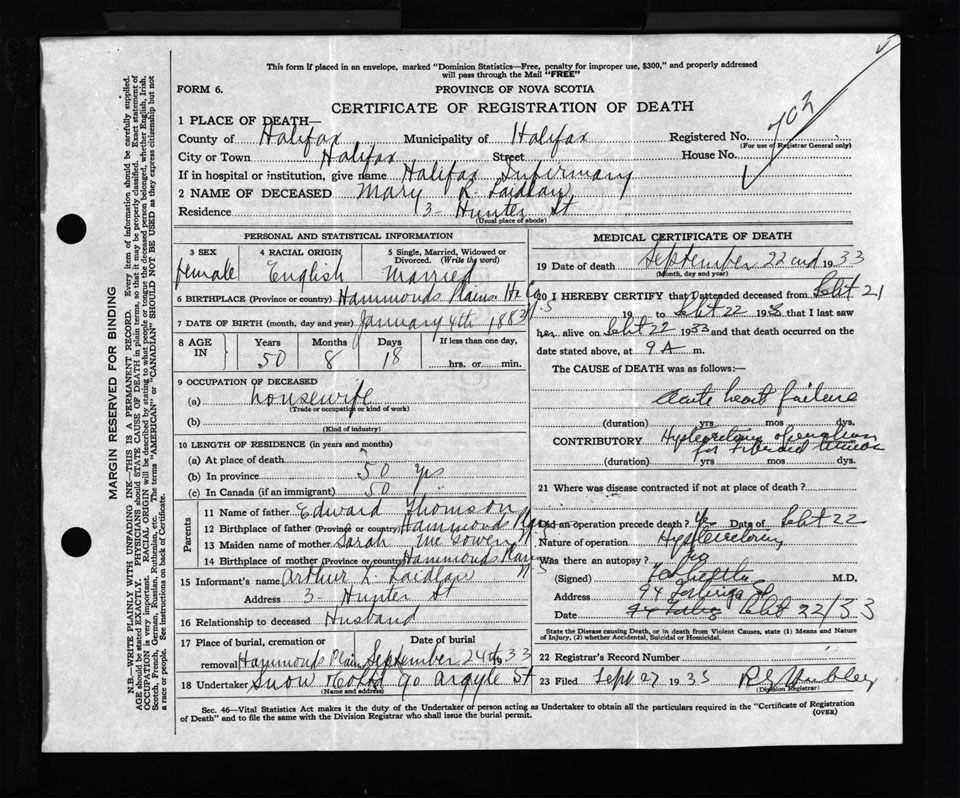 This form if placed in an envelope, marked "Dominion Statistics—Free, penalty for improper use, $300," and properly addressed
will pass through the Mail "FREE"
FORM 6.
PROVINCE OF NOVA SCOTIA
CERTIFICATE OF REGISTRATION OF DEATH
703
1 PLACE OF DEATH—
County of Halifax Municipality of Halifax Registered No.
(For use of Registrar General only)
City or Town Halifax Street House No.
If in hospital or institution, give name Halifax Infirmary
2 NAME OF DECEASED Mary R. Laidlaw
Residence 3 - Hunter St
(Usual place of abode)
PERSONAL AND STATISTICAL INFORMATION
3 SEX 4 RACIAL ORIGIN 5 Single, Married, Widowed or Divorced. (Write the word)
female English Married
6 BIRTHPLACE (Province or country) Hammonds Plains Hx Co N.S
7 DATE OF BIRTH (month, day and year) January 4th 1882
8 AGE IN Years Months Days If less than one day,
50 8 18 hrs. or min.
9 OCCUPATION OF DECEASED
(a) housewife
(Trade or occupation or kind of work)
(b)
(Kind of industry)
10 LENGTH OF RESIDENCE (in years and months)
(a) At place of death
(b) In province 50 Ys
(c) In Canada (if an immigrant) 50
Parents
11 Name of father Edward Thomson
12 Birthplace of father (Province or country) Hammond Plains
13 Maiden name of mother Sarah McGowen
14 Birthplace of mother (Province or country) Hammonds Plains N S
15 Informant's name Arthur L. Laidlaw
Address 3 - Hunter St
16 Relationship to deceased Husband
17 Place of burial, cremation or removal Date of burial
Hammonds Plain September 24th 1933
18 Undertaker Snow & Co Ltd 90 Argyle St
(Name and address)
MEDICAL CERTIFICATE OF DEATH
19 Date of death September 22nd 1933
(Month, day and year)
20 I HEREBY CERTIFY that I attended deceased from Sept 21
19 to Sept 22 193 that I last saw
her alive on Sept 22 1933 and that death occurred on the
date stated above, at 9 A m.
The CAUSE of DEATH was as follows:—
Acute heart failure
(duration) yrs mos dys.
CONTRIBUTORY Hysterectomy operation
for Fibroid Uterus
(duration) yrs mos dys.
21 Where was disease contracted if not at place of death?
Did an operation precede death? Yes Date of Sept 22
Nature of operation Hysterectomy
Was there an autopsy? no
(Signed) M.D.
Address 94
Date Sept 22/33
State the Disease causing Death, or in death from Violent Causes, state (1) Means and Nature
of Injury, (2) whether Accidental, Suicidal or Homicidal.
22 Registrar's Record Number
23 Filed Sept 27 1933
(Division Registrar)
Sec. 46—Vital Statistics Act makes it the duty of the Undertaker or person acting as Undertaker to obtain all the particulars required in the "Certificate of Registration
of Death" and to file the same with the Division Registrar who shall issue the burial permit.
(OVER)
MARGIN RESERVED FOR BINDING
N.B.—WRITE PLAINLY WITH UNFADING INK—THIS IS A PERMANENT RECORD. Every item of information should be carefully supplied.
AGE should be stated EXACTLY. PHYSICIANS should STATE CAUSE OF DEATH in plain terms, so that it may be properly classified. Exact statement of
OCCUPATION is very important. RACIAL ORIGIN will be described by stating to what people or tongue the deceased person belonged, whether English, Irish,
Scotch, French, German, Russian, Ruthenian, etc. The terms "AMERICAN" or "CANADIAN" SHOULD NOT BE USED as they express citizenship but not
a race or people. See instructions on back of Certificate.